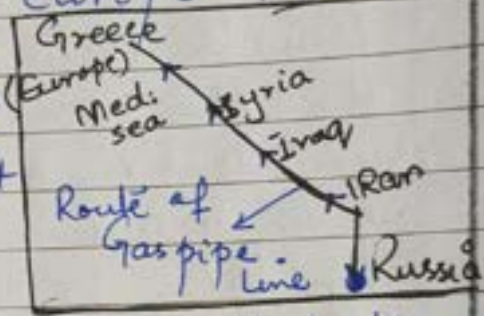 Greece
(Europe)
Med.
sea
Syria
Iraq
IRan
Route of
Gas pipe
Line
Russia